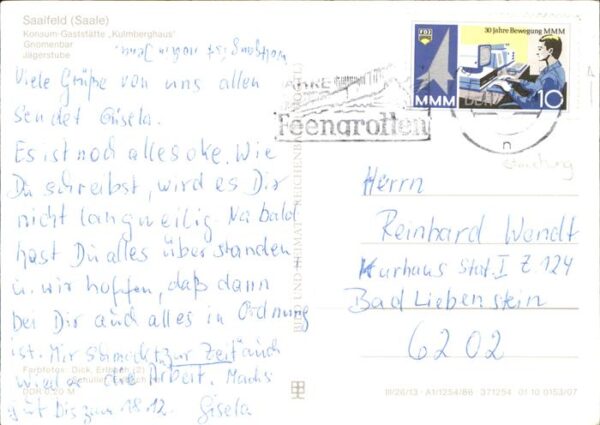 Saalfeld (Saale)
Konsum-Gaststätte „Kulmberghaus"
Gnomenbar
Jägerstube
Viele Grüße von uns allen
sendet Gisela.
Es ist noch alles oke. Wie
Du schreibst, wird es Dir
nicht langweilig. Na bald
hast Du alles überstanden
u. wir hoffen, daß dann
bei Dir auch alles in Ordnung
ist. Mir schmeckt "zur Zeit" auch
wieder die Arbeit. Machs
gut bis zum 18.12. Gisela
Farbfotos: Dick, Erlbach (2)
DDR 0,20 M
BILD UND HEIMAT REICHENBACH (VOGTL)
FDJ
MMM
30 Jahre Bewegung MMM
DDR
10
Feengrotten
Herrn
Reinhard Wendt
Kurhaus Stat. I Z 124
Bad Liebenstein
6202
III/26/13 A1/1254/86 371254 01 10 0153/07